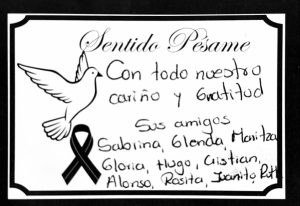 Sentido Pésame
Con todo nuestro
cariño y Gratitud
Sus amigos
Sabrina, Glenda, Maritza
Gloria, Hugo, Cristian,
Alonso, Rosita, Juanito, Ruth